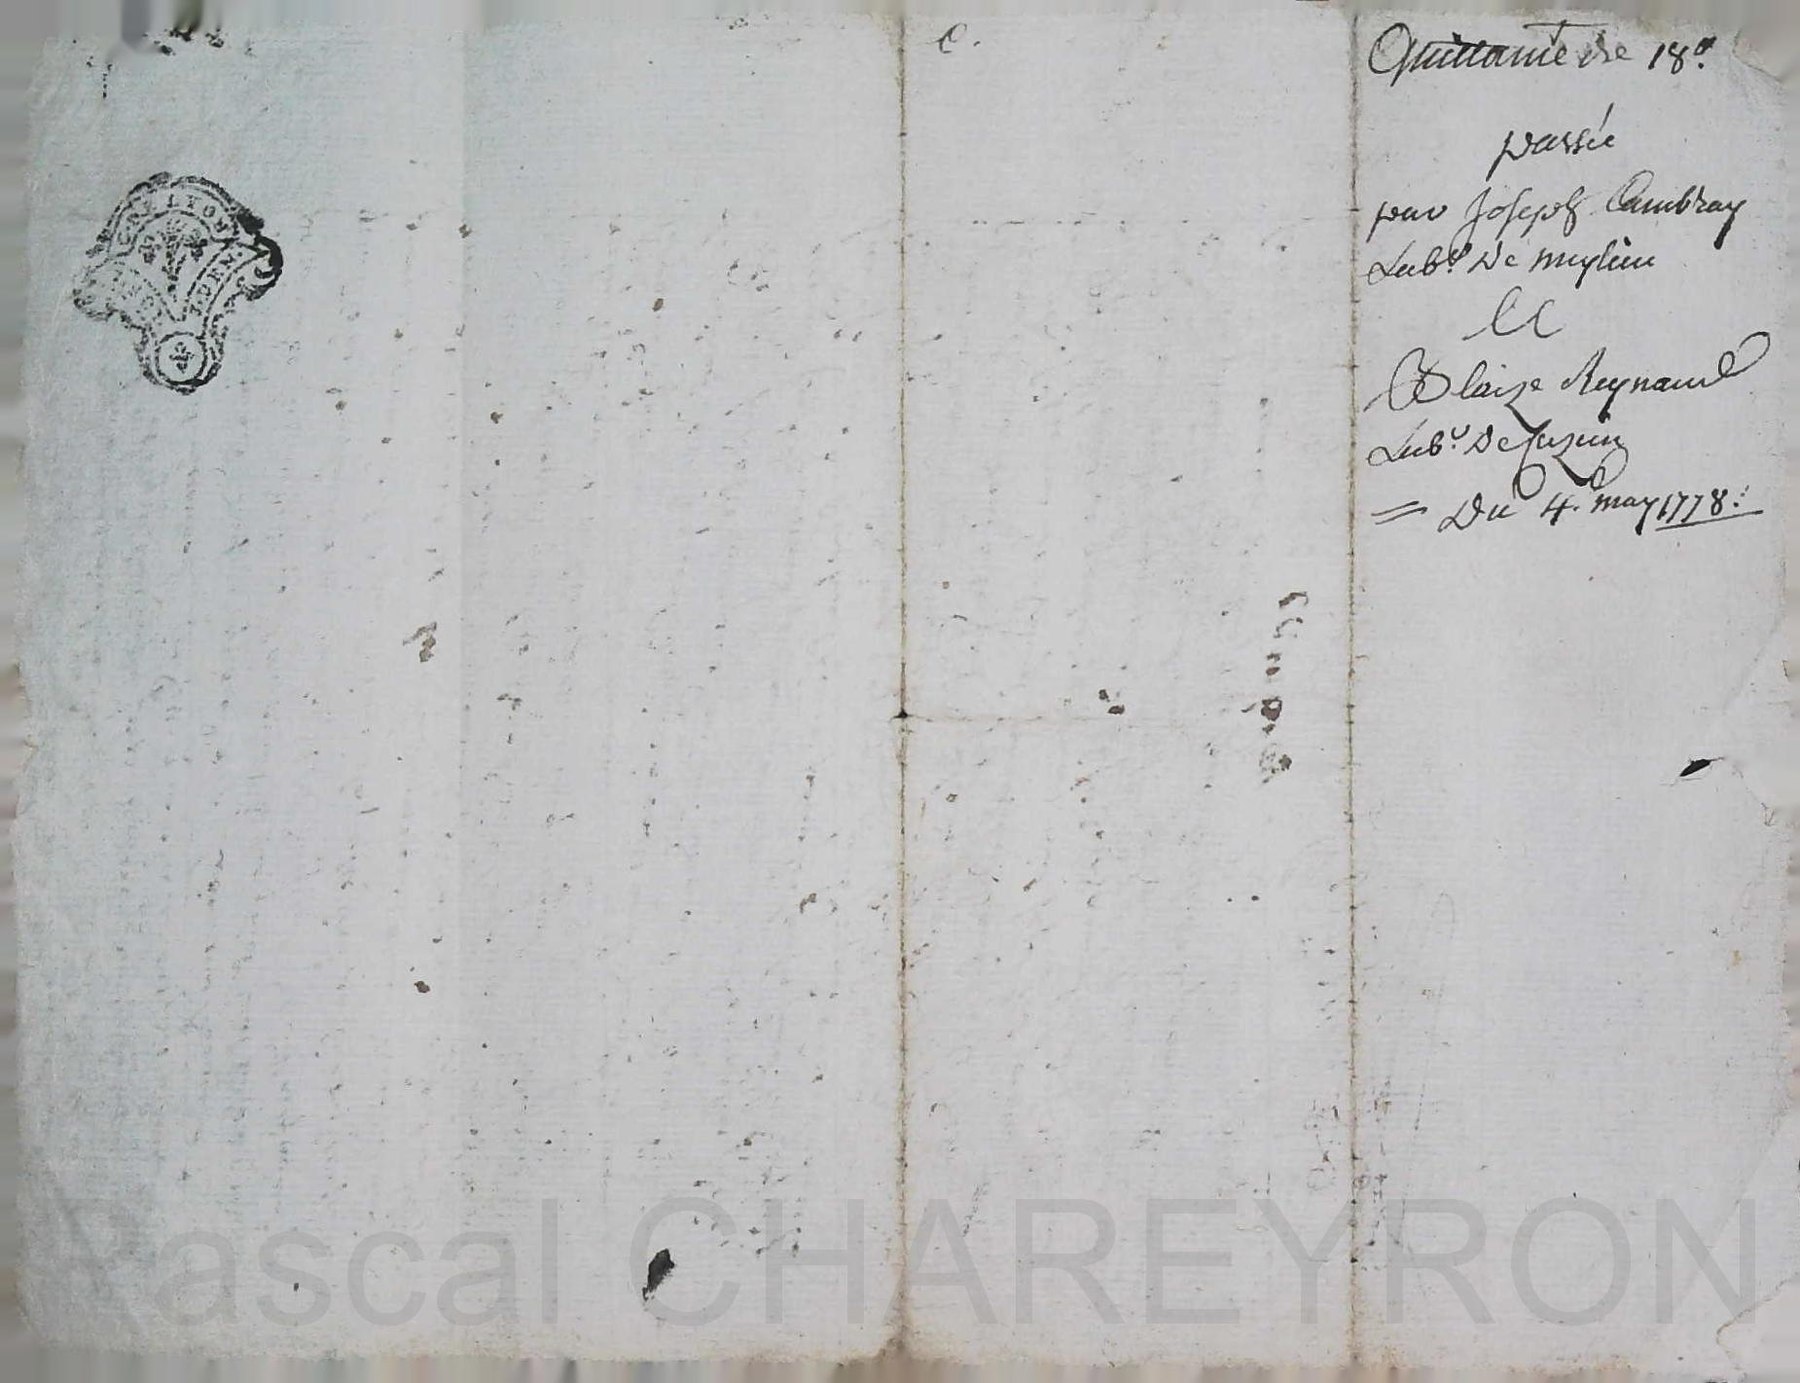 C.
Quittance de 18#.
passée
par Joseph Cambray
Lab.r De meylieu
A
Blaize Reynaud
Lab.r De Cuzieu
= Du 4. may 1778.
GEN. LYON
Pascal CHAREYRON